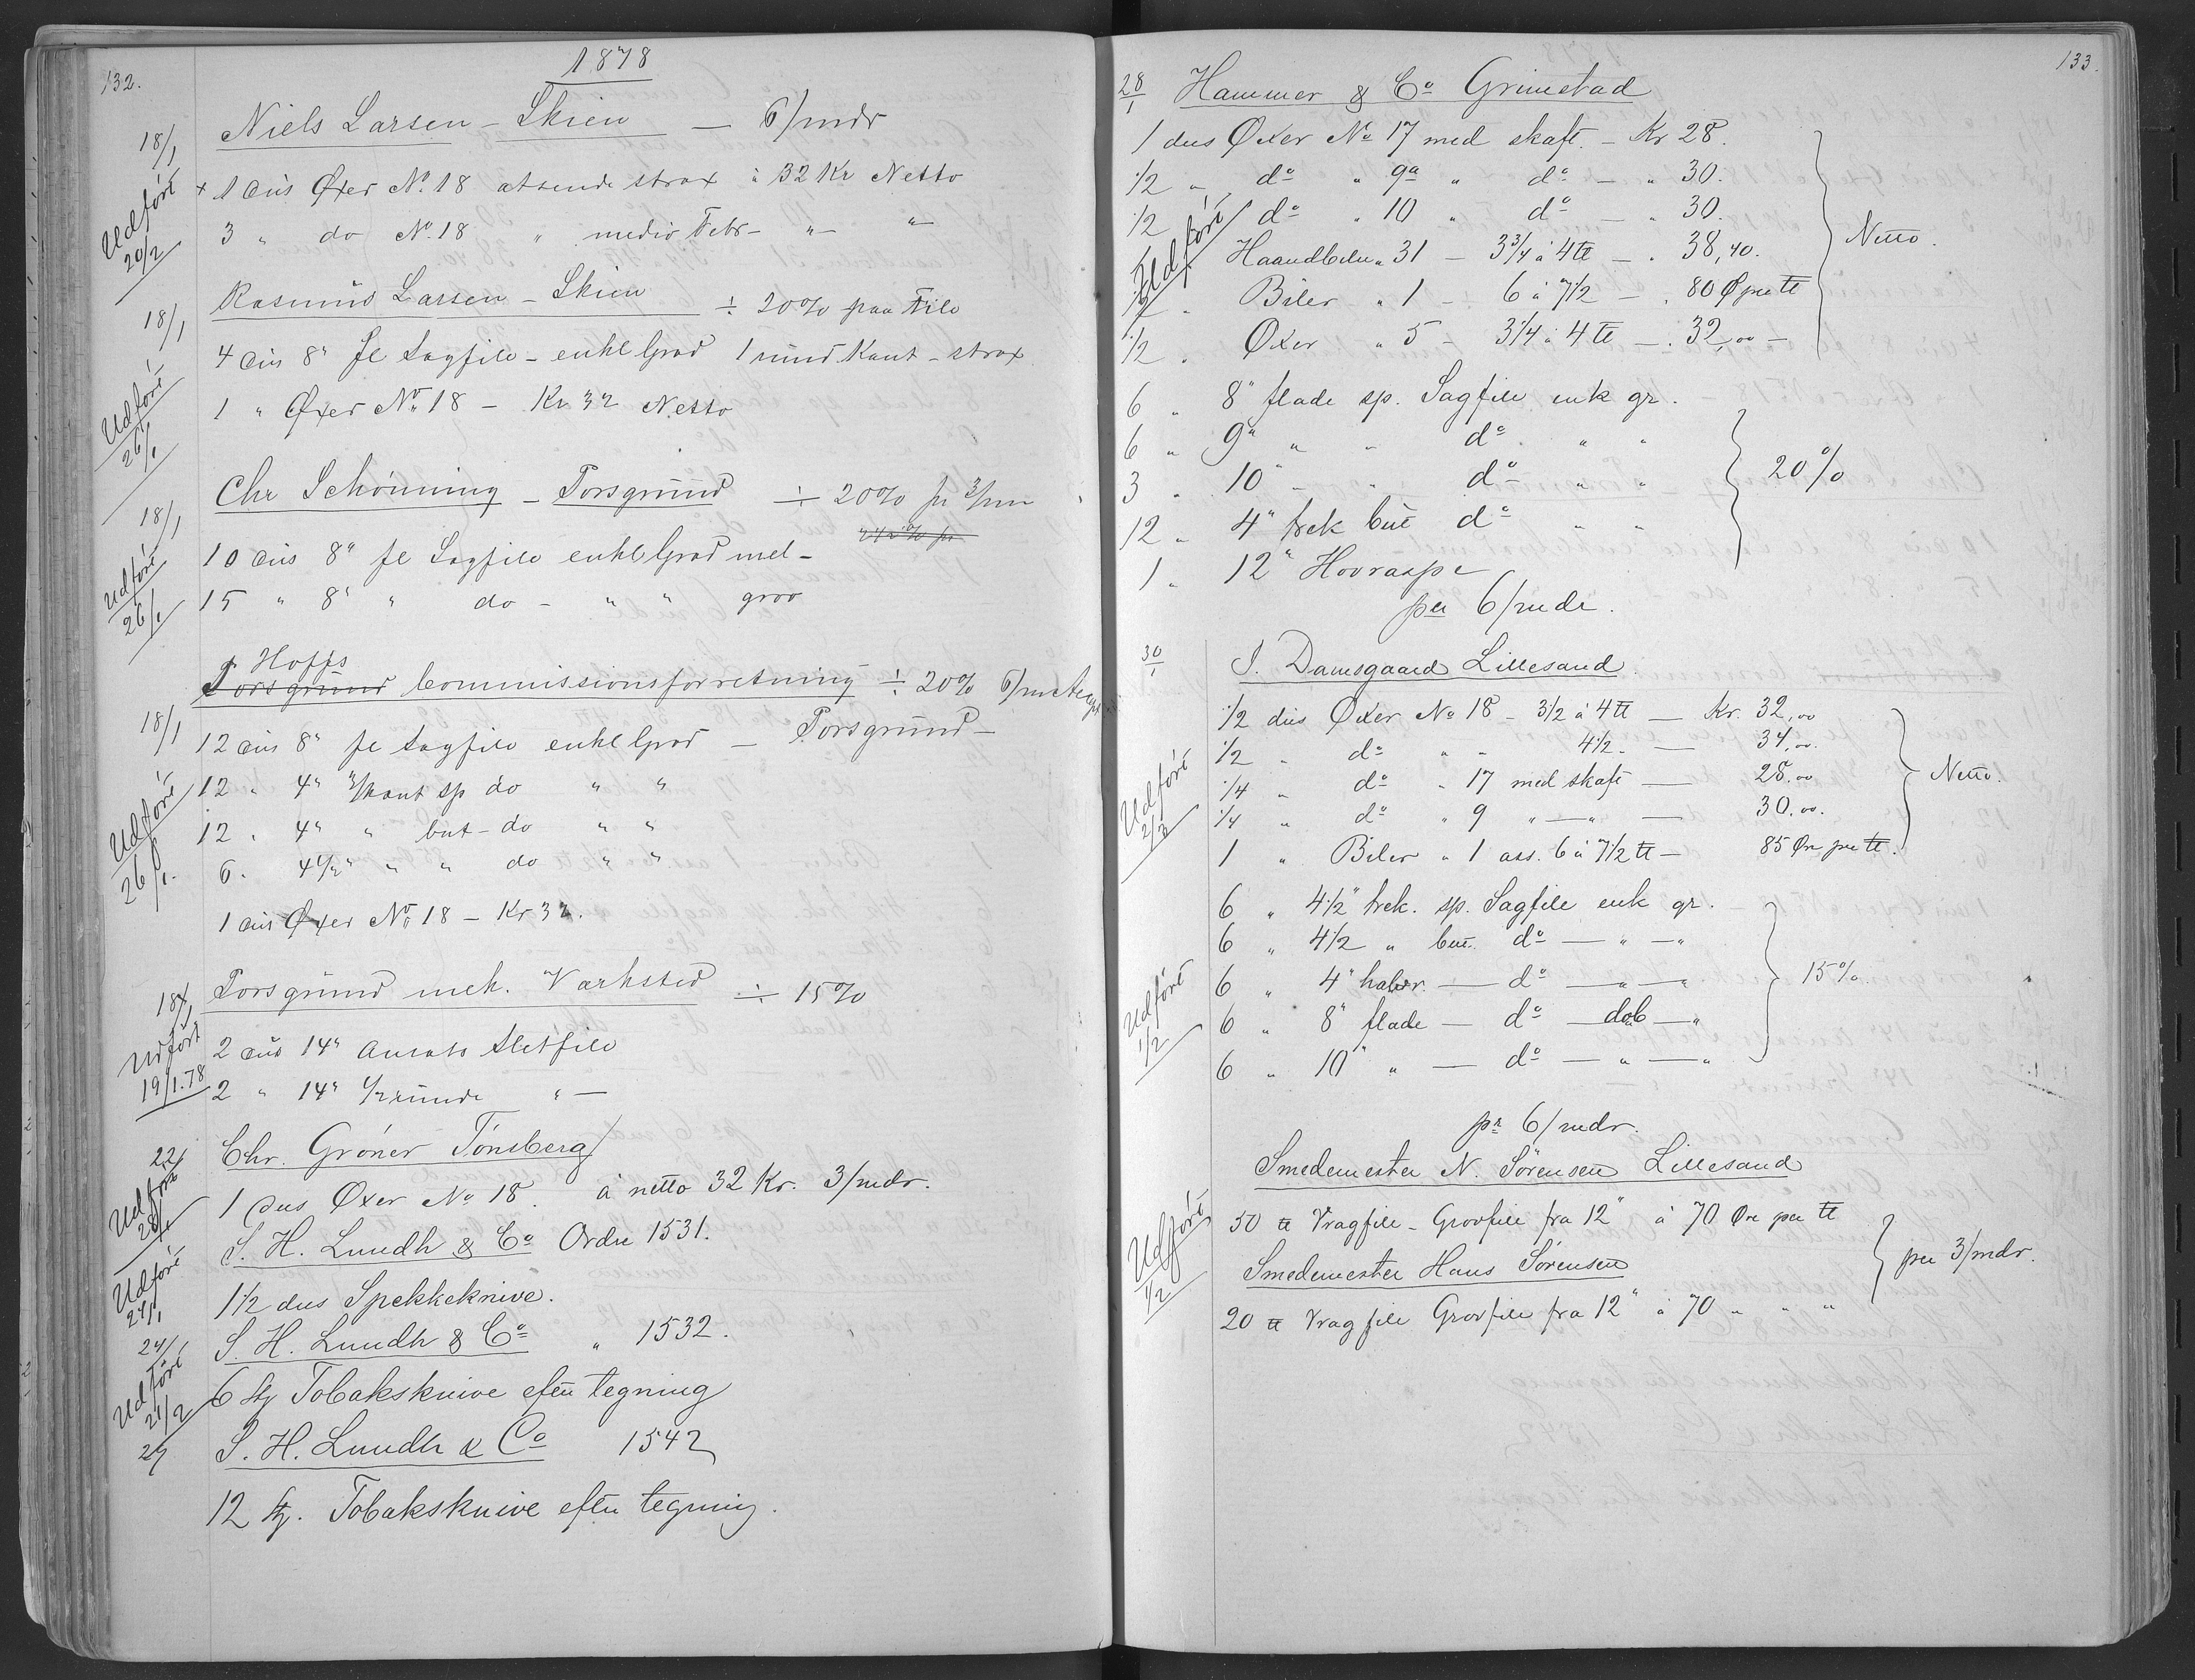 132.
1878
18/1 Niels Larsen - Skien — 6/mdr
× 1 dus Øxer No. 18 atsende strax à 32 Kr Netto
3 " do No. 18 " medio Febr - " - "
Udført 20/2
18/1 Rasmus Larsen - Skien ÷ 20% paa File
4 dus 8" fl Sagfile - enkl Grad 1 rund Kant - strax
1 " Øxer No. 18 - Kr 32 Netto
Udført 26/1
18/1 Chr Schönning - Porsgrund ÷ 20% pr 3/mn
10 dus 8" fl Sagfile enkl Grad mel -
15 " 8" " do - " " grov
Udført 26/1
Hoffs
Porsgrund Commissionsforretning ÷ 20% 6/m
18/1 12 dus 8" fl Sagfile enkl Grad — Porsgrund -
12 " 4" 3/kant sp do " "
12 " 4" " but - do " "
6 " 4 1/2" " " do " "
1 dus Øxer No. 18 - Kr 32.
Udført 26/1.
18/1 Porsgrund mek. Værksted ÷ 15%
2 dus 14" Ansats Sletfile
2 " 14" 1/2 runde " —
Udført 19/1.78
22/1 Chr. Gröner Tönsberg
1 dus Oxer No 18. à netto 32 Kr. 3/mdr.
Udført 28/1
S. H. Lundh & Co Ordre 1531.
1 1/2 dus Spekkeknive.
Udført 24/1
24/1 S. H. Lundh & Co " 1532.
6 stj Tobaksknive efter tegning
Udført 21/2
27 S. H. Lundh & Co 1542
12 stj. Tobaksknive efter tegning.
133.
28/1 Hammer & Co Grimstad
1 dus Øxer No 17 med skaft. - Kr 28.
1/2 " do " 9a " do - " 30.
1/2 " do " 10 " do — " 30.
Haandbiler " 31 - 3 3/4 à 4 ℔ - " 38,40.
Biler " 1 - 6 à 7 1/2 - " 80 Ø per ℔
1/2 " Oxer " 5 - 3 1/4 à 4 ℔ - " 32,00 -
Netto.
Udført
6 " 8" flade sp. Sagfile enk gr.
6 " 9" " " do " "
3 " 10" " " do " "
12 " 4" trek but do " "
1 " 12" Hovraspe
20%
per 6/mdr.
30/1 S. Damsgaard Lillesand
1/2 dus Øxer No 18 - 3 1/2 à 4 ℔ — Kr. 32,00
1/2 " do " " 4 1/2 " — 34,00.
1/4 " do " 17 med skaft — 28.00
1/4 " do " 9 " — " — 30.00.
1 " Biler " 1 ass. 6 à 7 1/2 ℔ — 85 Øre per ℔.
Netto.
Udført 2/3
6 " 4 1/2" trek. sp. Sagfile enk gr.
6 " 4 1/2 " but. do — " — "
6 " 4" halvr. — do — " — "
6 " 8" flade — do — dob — "
6 " 10" " — do — " — "
15%
Udført 1/2
pr 6/mdr.
Smedemester N. Sörensen Lillesand
50 ℔ Vragfile - Grovfile fra 12" à 70 Øre per ℔
Smedemester Hans Sörensen
20 ℔ Vragfile Grovfile fra 12" à 70 " " "
per 3/mdr.
Udført 1/2